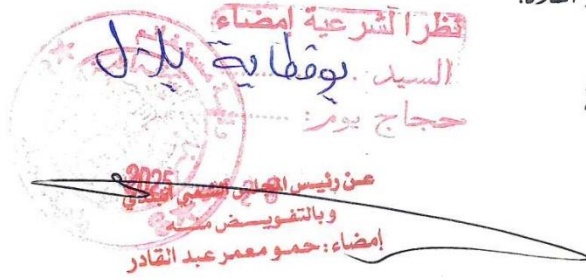 نظرا لشرعية إمضاء
السيد ..... بوقطاية بلال
حجاج يوم: .........
2025
عن رئيس المجلس الشعبي البلدي
وبالتفويض منه
إمضاء: حمو معمر عبد القادر